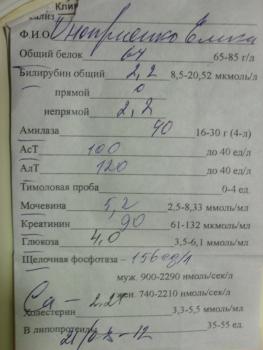 Кли
ализ
Ф.И.О.
Общий белок 64 65-85 г/л
Билирубин общий 2,2 8,5-20,52 мкмоль/л
прямой 0
непрямой 2,2
Амилаза 40 16-30 г (4-л)
АсТ 100 до 40 ед/л
АлТ 120 до 40 ед/л
Тимоловая проба 0-4 ед.
Мочевина 5,2 2,5-8,33 ммоль/л
Креатинин 90 61-132 мкмоль/л
Глюкоза 4,0 3,5-6,1 ммоль/л
Щелочная фосфотаза - 156 ед/л
муж. 900-2290 нмоль/сек/л
жен. 740-2210 нмоль/сек/л
Ca - 2,21
Холестерин 3,3-5,5 ммоль/л
В липопротеиды 35-55 ед.